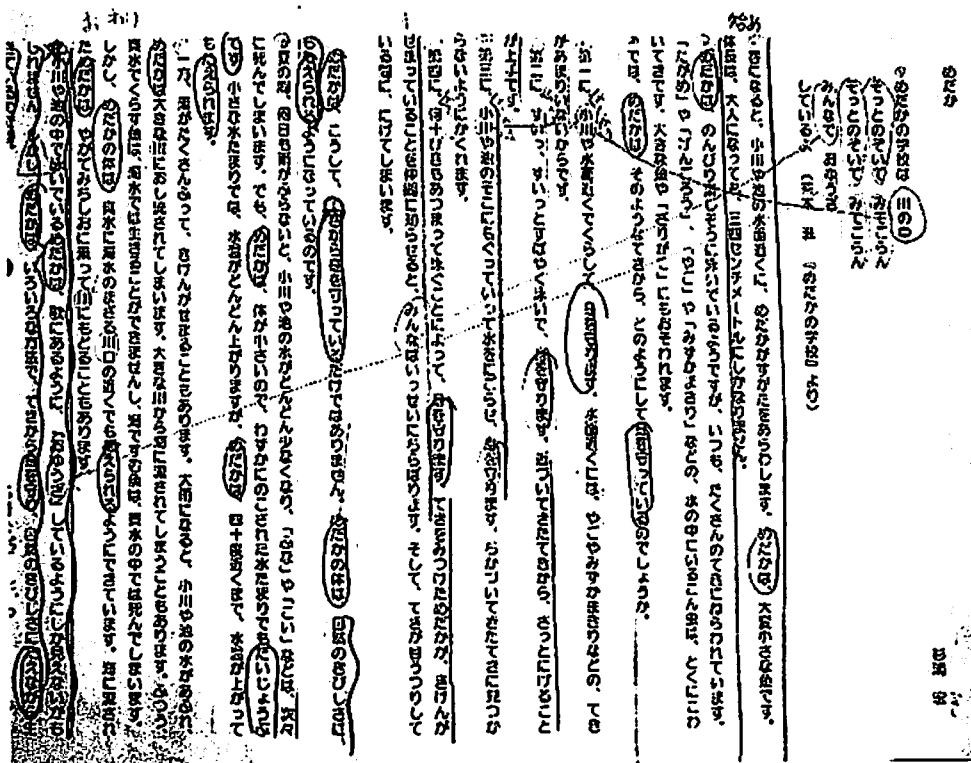 めだか
杉浦 宏
めだかの学校は 川の中
そっとのぞいて みてごらん
そっとのぞいて みてごらん
みんなで おゆうぎ
しているよ
（茶木 滋 「めだかの学校」より）
始め
春になると、小川や池の水面近くに、めだかがすがたをあらわします。めだかは、大変小さな魚です。
体長は、大人になっても、三四センチメートルにしかなりません。
めだかは、のんびり楽しそうに泳いでいるようですが、いつも、たくさんのてきにねらわれています。
「たがめ」や「げんごろう」、「やご」や「みずかまきり」などの、水の中にいるこん虫は、とくにこわ
いてきです。大きな魚や「ざりがに」にもおそわれます。
では、めだかは、そのようなてきから、どのようにして身を守っているのでしょうか。
第一に、小川や池の水面近くでくらして、身を守ります。水面近くには、やごやみずかまきりなどの、てき
があまりいないからです。
第二に、すいっ、すいっとすばやく泳いで、身を守ります。近づいてきたてきから、さっとにげること
が上手です。
第三に、小川や池のそこにもぐっていって水をにごらせ、身を守ります。近づいてきたてきに見つか
らないようにかくれます。
第四に、何十ぴきもあつまって泳ぐことによって、身を守ります。てきを見つけためだかが、きけんが
せまっていることを仲間に知らせると、みんなはいっせいにちらばります。そして、てきが目うつりして
いる間に、にげてしまいます。
めだかは、こうして、てきから身を守っているだけではありません。めだかの体は、自然のきびしさに
もたえられるようになっているのです。
夏の間、何日も雨がふらないと、小川や池の水がどんどん少なくなり、「ふな」や「こい」などは、次々
に死んでしまいます。でも、めだかは、体が小さいので、わずかにのこされた水たまりでもだいじょうぶ
です。小さな水たまりでは、水温がどんどん上がりますが、めだかは、四十度近くまで、水温が上がって
もたえられます。
一方、雨がたくさんふって、きけんがせまることもあります。大雨になると、小川や池の水があふれ、
めだかは大きな川におし流されてしまいます。大きな川から海に流されてしまうこともあります。ふつう、
真水でくらす魚は、海水では生きることができませんし、海にすむ魚は、真水の中では死んでしまいます。
しかし、めだかの体は、真水に海水のまざる川口の近くでもたえられるようにできています。海に流され
ためだかは、やがてみちしおに乗って川にもどることもあります。
おわり
小川や池の中で泳いでいるめだかは、歌にあるように、「おゆうぎ」しているようにしか見えないかも
しれません。しかし、めだかは、いろいろな方法で、てきから身を守り、自然のきびしさにたえながら生